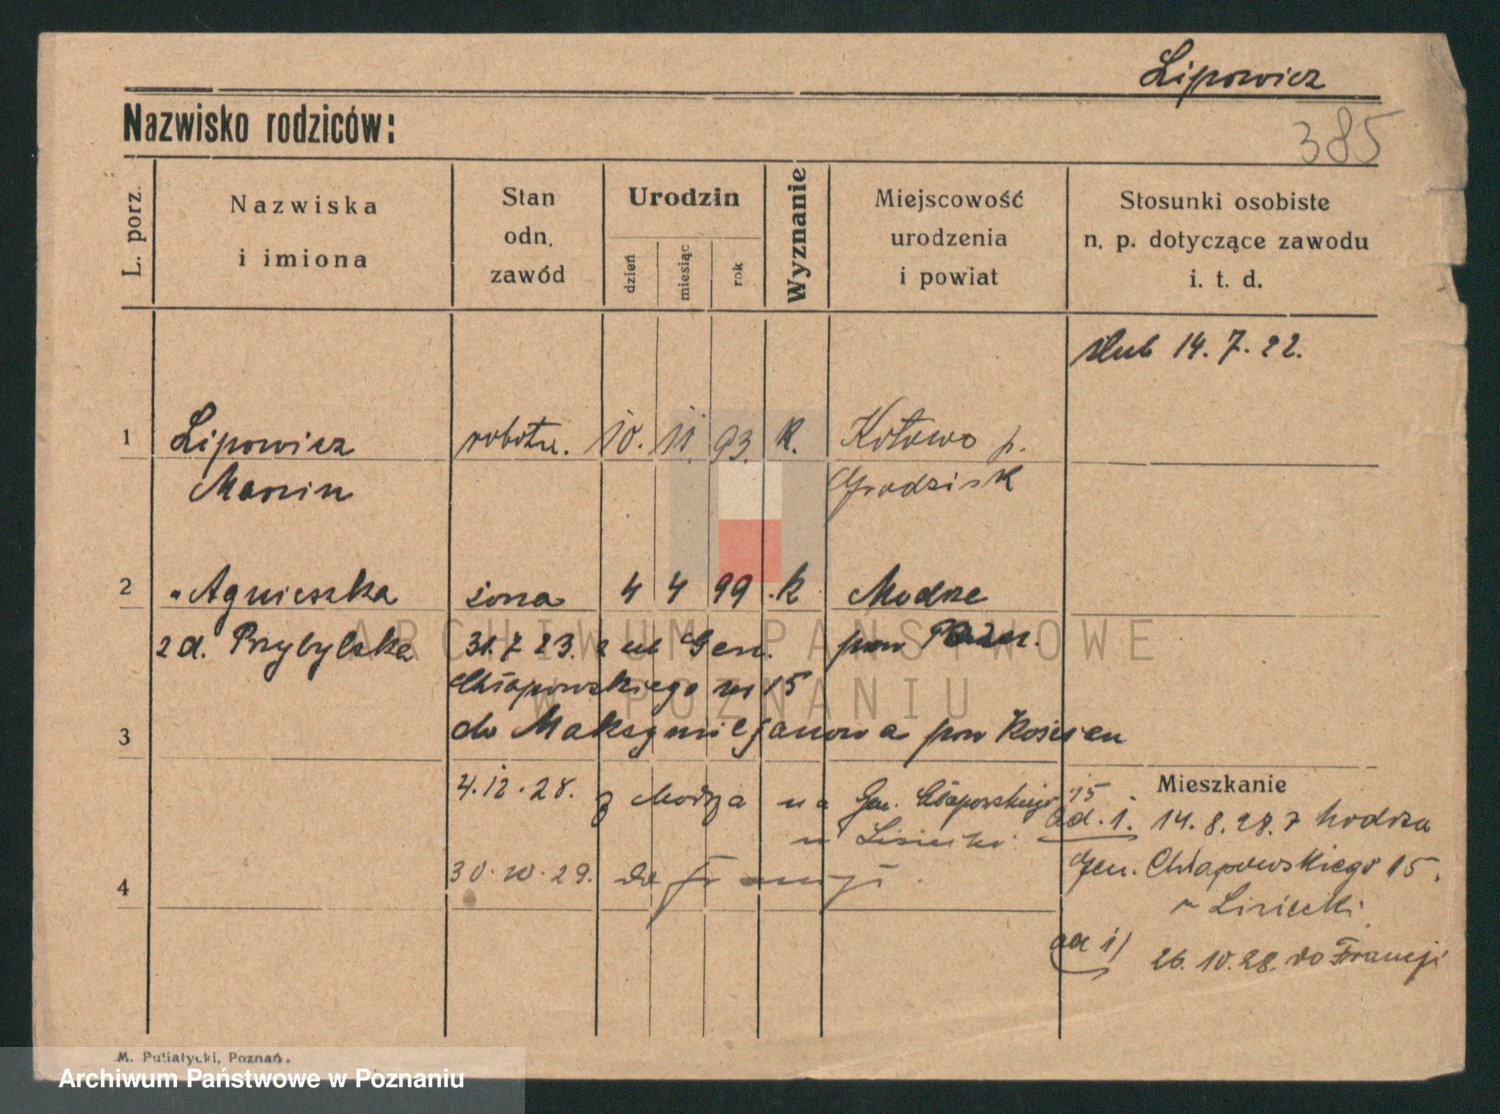 Lipowicz
Nazwisko rodziców:
385
L. porz.
Nazwiska
i imiona
Stan
odn.
zawód
Urodzin
dzień
miesiąc
rok
Wyznanie
Miejscowość
urodzenia
i powiat
Stosunki osobiste
n. p. dotyczące zawodu
i. t. d.
ślub 14. 7. 22.
1 Lipowicz robotn. 10. 11. 93. k. Kotowo p.
Marcin Grodzisk
2 " Agnieszka żona 4 4 99 k Modrze
z d. Przybylska 31. 7. 23. z ul Gen. pow Pozn.
Chłapowskiego nr 15
3 do Maksymiljanowa pow Kościan
4. 12. 28. z Modrza na Gen. Chłapowskiego 15
u Lisiecki
30. 10. 29. do Francji.
4
Mieszkanie
ad. 1. 14. 8. 28. z Modrza
Gen. Chłapowskiego 15.
u Lisiecki
ad 1) 26. 10. 28. do Francji
M. Putiatycki, Poznań.
ARCHIWUM PAŃSTWOWE
W POZNANIU
Archiwum Państwowe w Poznaniu